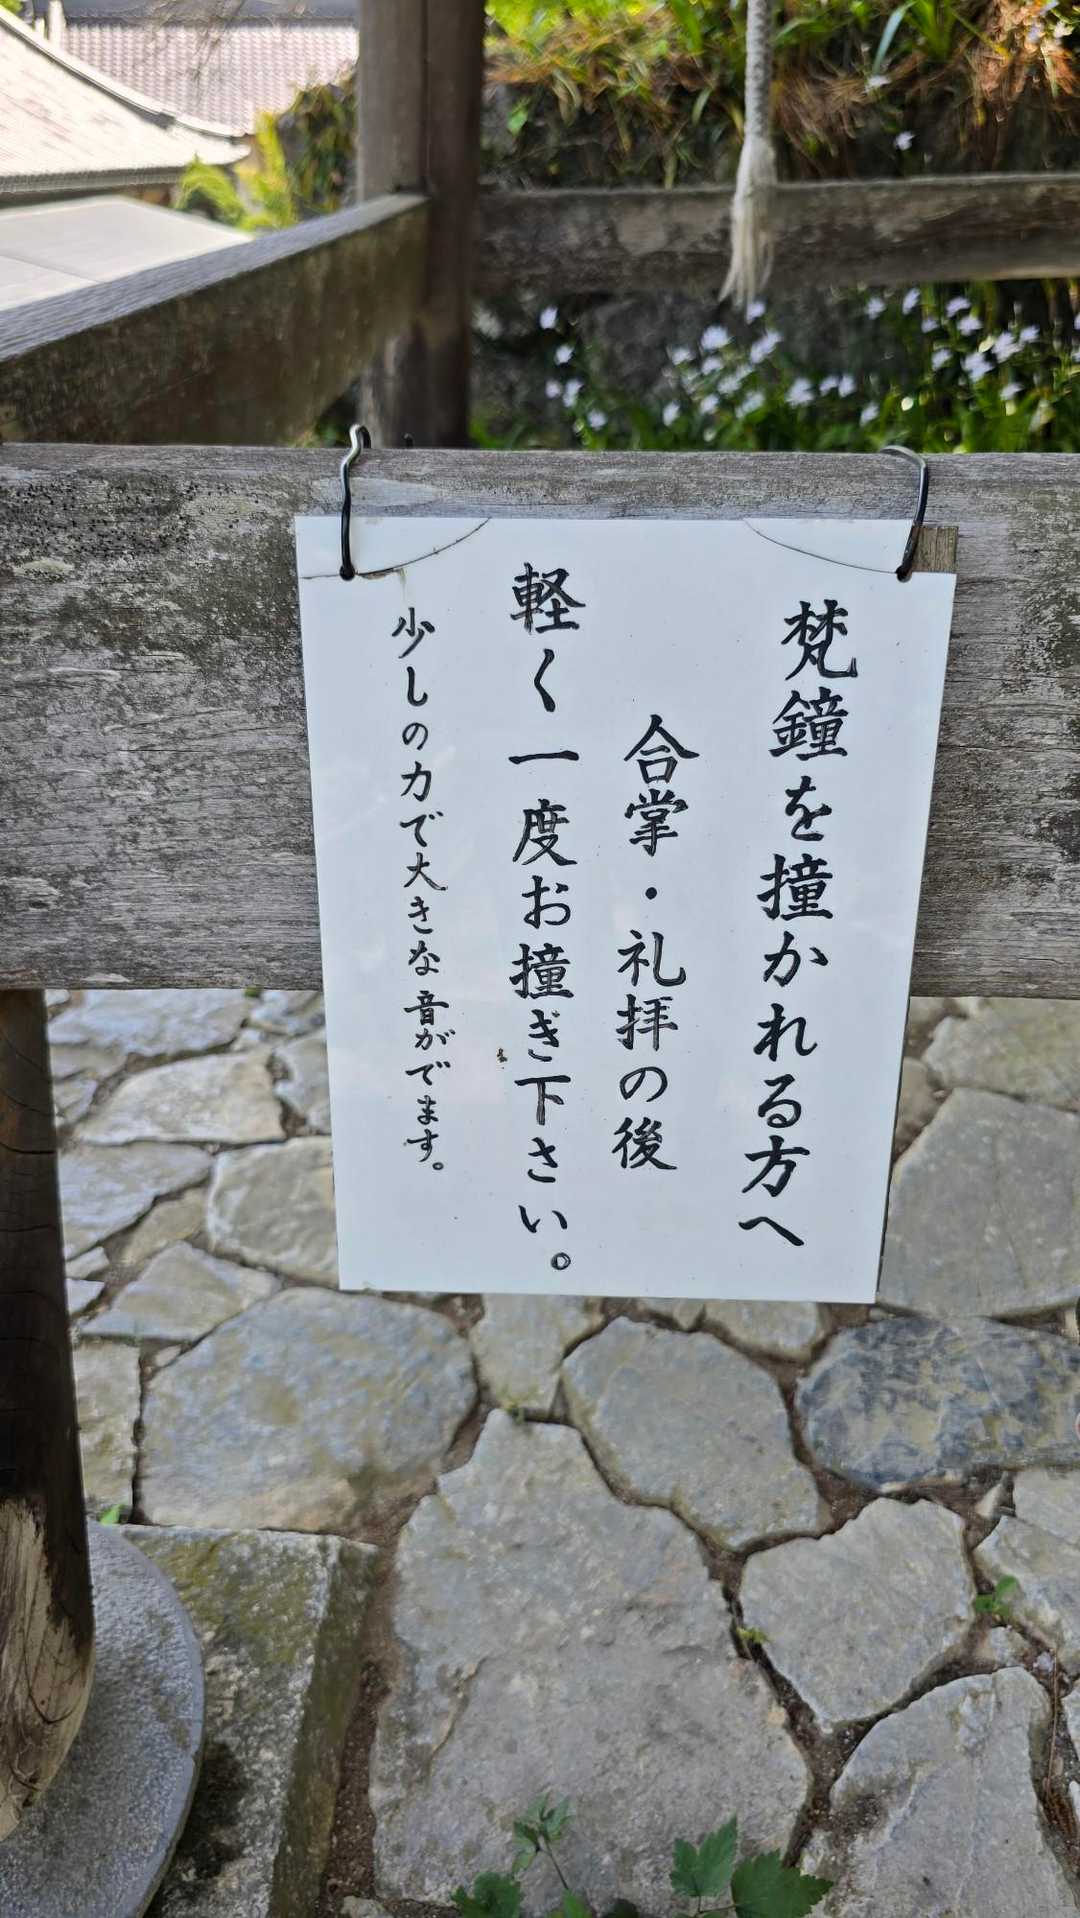 梵鐘を撞かれる方へ
合掌・礼拝の後
軽く一度お撞ぎ下さい。
少しの力で大きな音がでます。